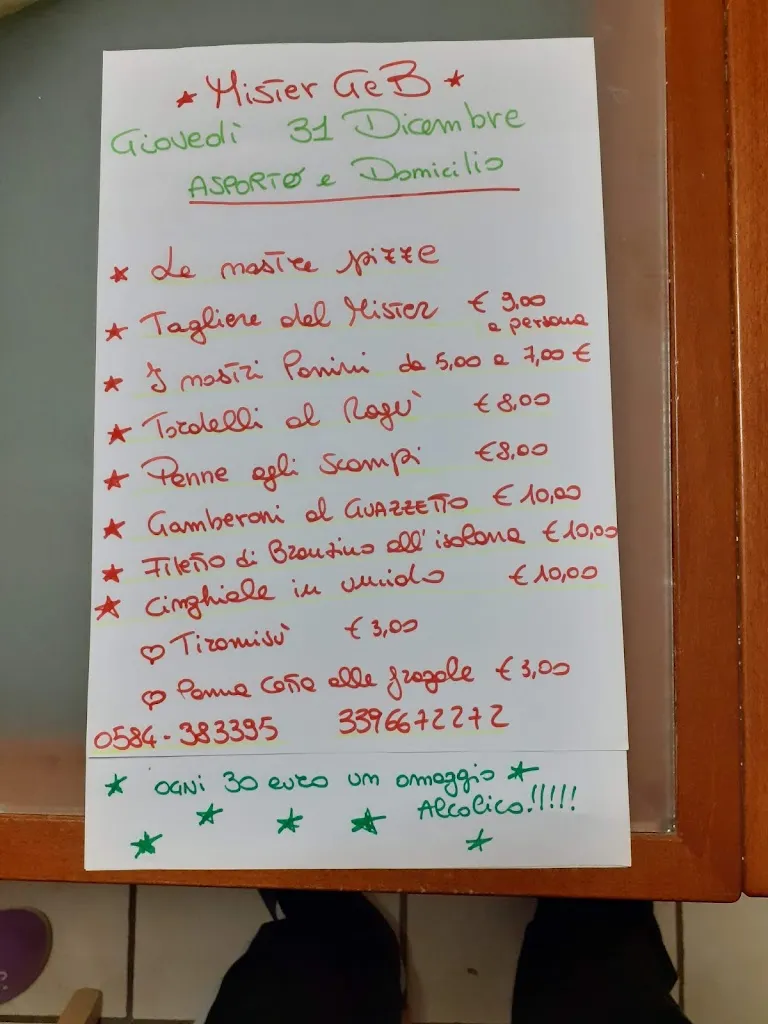 Mister GeB
Giovedì 31 Dicembre
ASPORTO e Domicilio
Le nostre pizze
Tagliere del Mister € 9,00
a persona
I nostri Panini da 5,00 a 7,00 €
Tordelli al Ragu' € 8,00
Penne agli Scampi €8,00
Gamberoni al GUAZZETTO € 10,00
Filetto di Branzino all'isolana € 10,00
Cinghiale in umido € 10,00
Tiramisu' € 3,00
Panna Cotta alle fragole € 3,00
0584-383395 3396672272
OGNI 30 euro un omaggio
Alcolico!!!!!